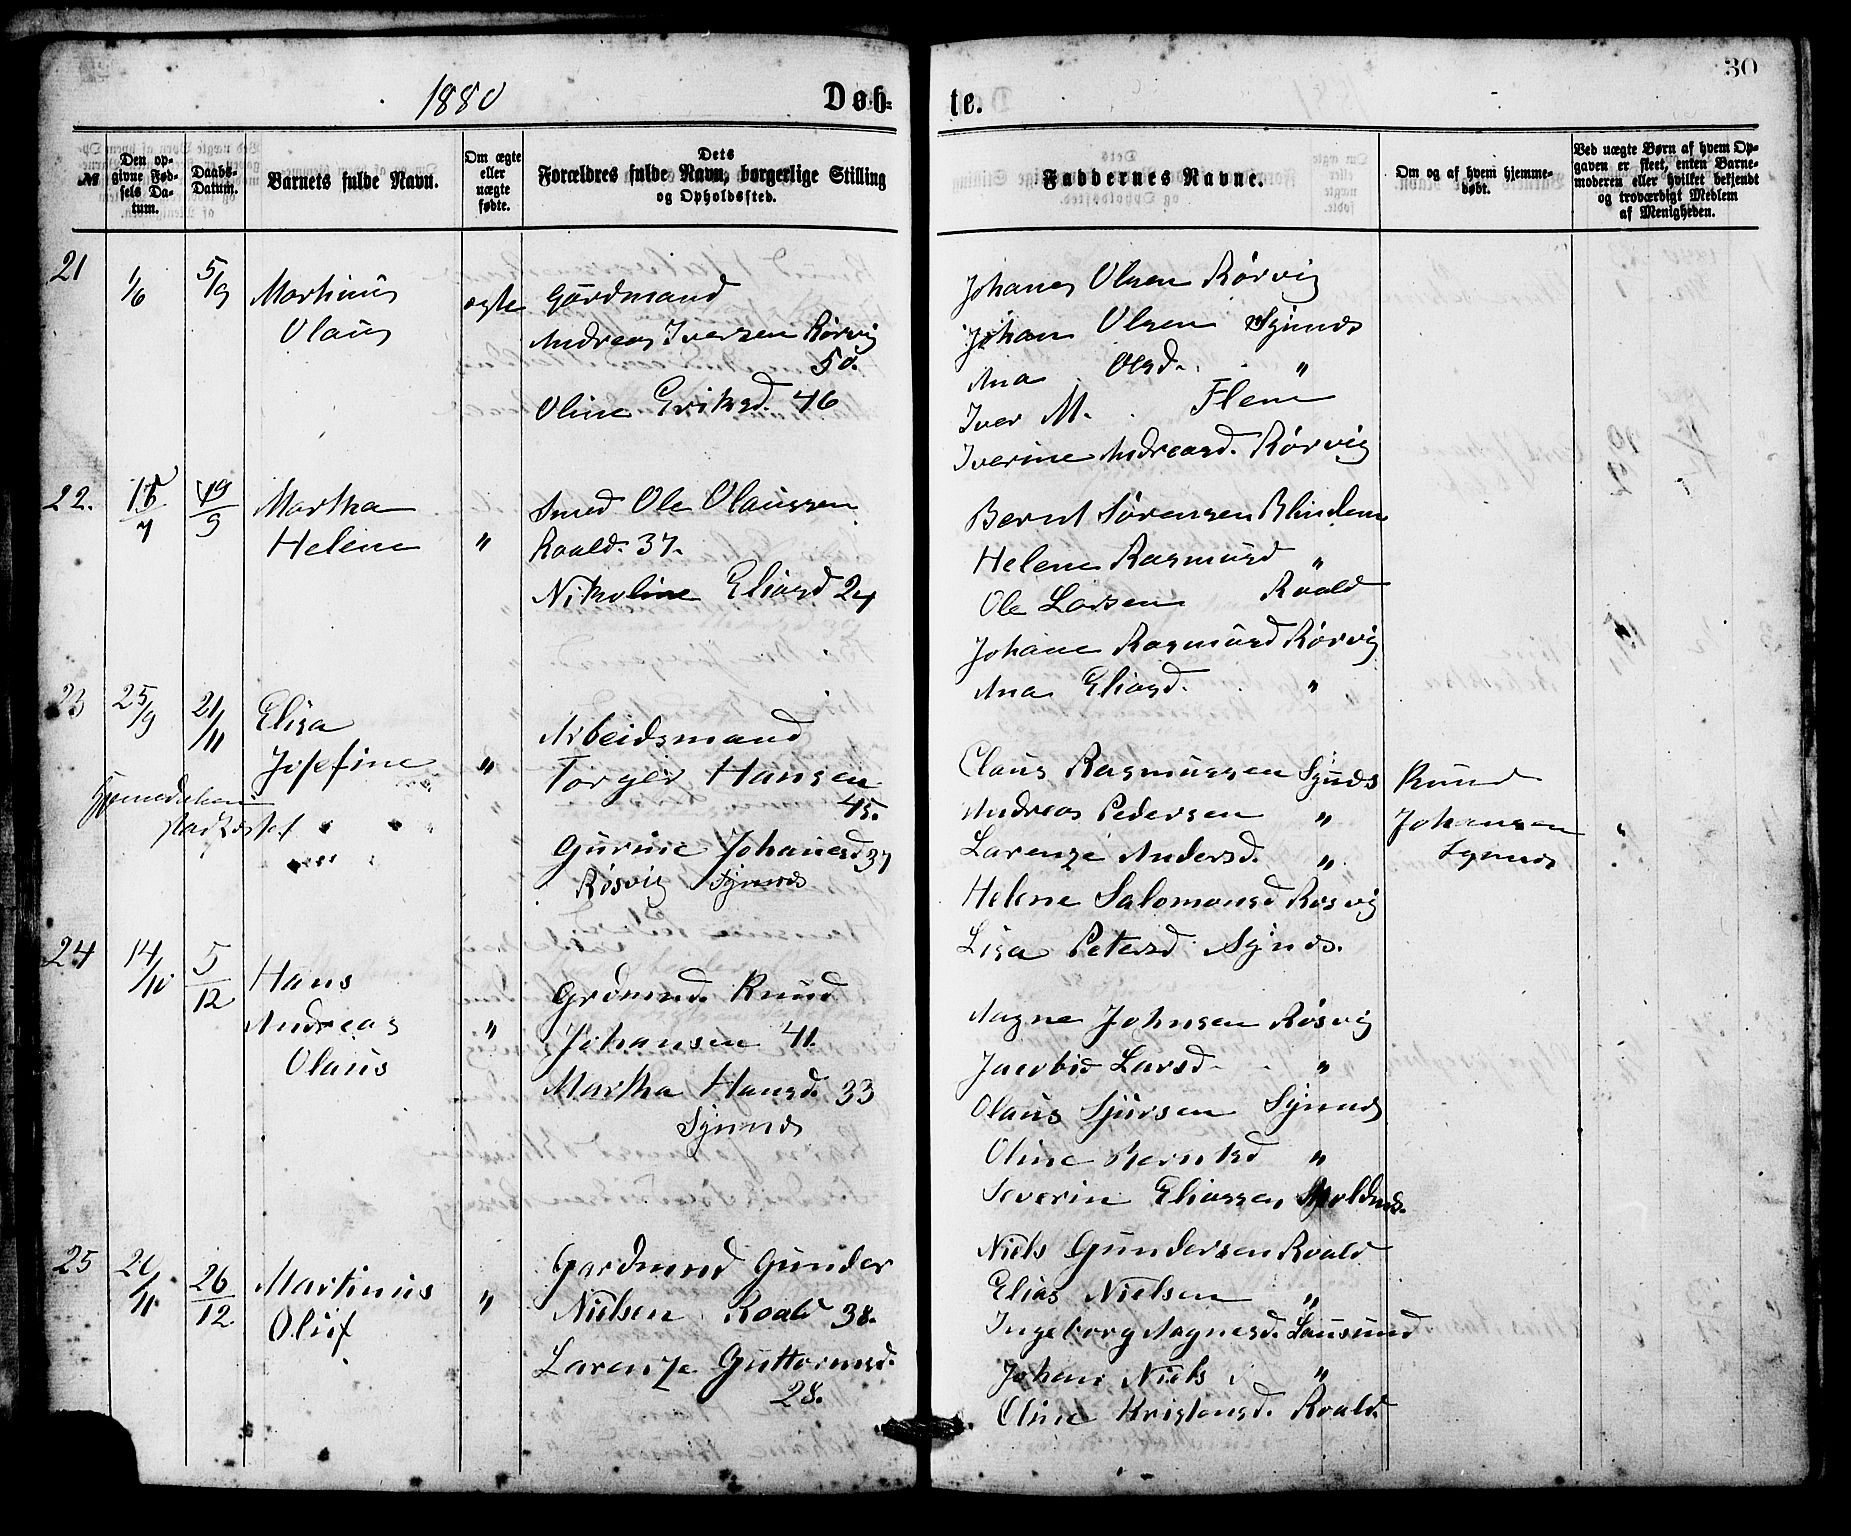 30
1880 Døb= te.
№
Den opgivne Fødsels Datum.
Daabs-Datum.
Barnets fulde Navn.
Om ægte eller uægte fødte.
Dets Forældres fulde Navn, borgerlige Stilling og Opholdssted.
Faddernes Navne.
Om og af hvem hjemmedøbt.
Ved uægte Børn af hvem Opgaven er skeet, enten Barnemoderen eller hvilket bekjendt og troværdigt Medlem af Menigheden.
21
1/6
5/9
Martinus
Olaus
ægte
Gårdmand
Andreas Iversen Rørvig
50.
Oline Eriksd. 46
Johanes Olsen Rørvig
Johan Olsen Synnes
Ana Olsd. "
Iver M. Flem
Iverine Andreasd. Rørvig
22.
15/7
19/9
Martha
Helene
"
Smed Ole Olaussen
Roald. 37.
Nikoline Eliasd 24
Bernt Sørensen Blindem
Helene Rasmusd "
Ole Larsen Roald
Johane Rasmusd Rørvig
Ana Eliasd. "
23
25/9
21/11
Elisa
Josefine
"
Hjemedaaben
stadfæstet
Arbeidsmand
Torger Hansen
45.
Gurine Johanesd 37
Røsvig Synnes
Claus Rasmussen Synds
Andreas Pedersen "
Larenze Andersd. "
Helene Salomonsd Røsvig
Lisa Petersd Synes.
Knud
Johansen
Synnes
24
14/10
5/12
Hans
Andreas
Olaus
"
Grdmnd. Knud
Johansen 41.
Martha Hansd. 33
Synnes
Aagne Johnsen Røsvig
Jacobid Larsd. "
Olaus Sjursen Synnes
Oline Berntsd "
Severin Eliassen Moldnes.
25
20/11.
26/12
Martinus
Oluf
"
Gardmnd Gunder
Nielsen Roald 38.
Larenze Guttormsd.
28.
Niels Gundersen Roald
Elias Nielsen "
Ingeborg Aagnesd. Lausund
Johan Niels "
Oline Kristensd. Roald.